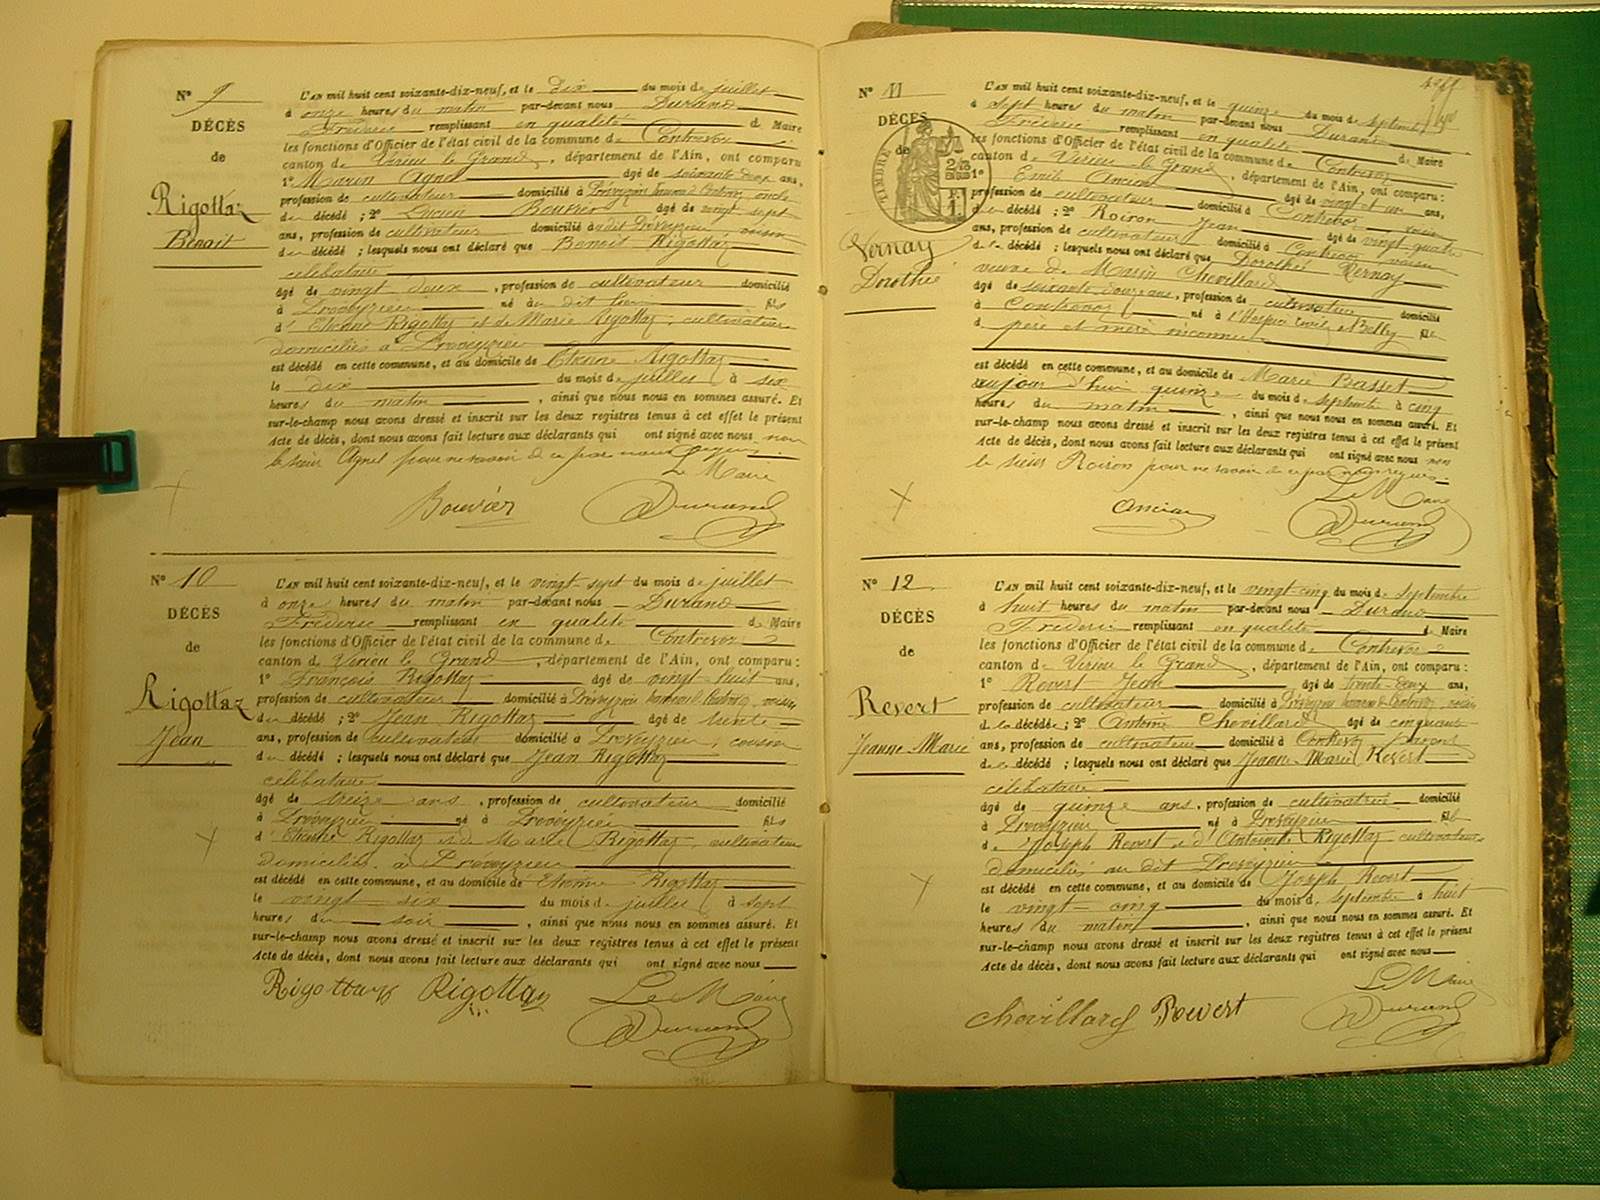 N° 9
DÉCÈS
de
Rigottaz
Benoit
L'AN mil huit cent soixante-dix-neuf, et le dix du mois de juillet
à onze heures du matin par-devant nous Durand
Fréderic remplissant en qualité de Maire
les fonctions d'Officier de l'état civil de la commune de Contrevoz
canton de Virieu le Grand, département de l'Ain, ont comparu
1° Marin Agnel âgé de soixante deux ans,
profession de cultivateur domicilié à Préveyzieu hameau de Contrevoz, oncle
du décédé ; 2° Lucien Bouvier âgé de vingt sept
ans, profession de cultivateur domicilié au dit Préveyzieu voisin
du décédé ; lesquels nous ont déclaré que Benoit Rigottaz
célébataire
âgé de vingt deux, profession de cultivateur domicilié
à Préveyzieu né au dit lieu fils
d'Etienne Rigottaz et de Marie Rigottaz, cultivateurs
domiciliés à Préveyzieu
est décédé en cette commune, et au domicile de Etienne Rigottaz
le dix du mois de juillet à six
heures du matin, ainsi que nous nous en sommes assuré. Et
sur-le-champ nous avons dressé et inscrit sur les deux registres tenus à cet effet le présent
Acte de décès, dont nous avons fait lecture aux déclarants qui ont signé avec nous non
le sieur Agnel pour ne savoir de ce par nous requis.
Le Maire
Bouvier Durand
N° 10
DÉCÈS
de
Rigottaz
Jean
L'AN mil huit cent soixante-dix-neuf, et le vingt-sept du mois de juillet
à onze heures du matin par-devant nous Durand
Fréderic remplissant en qualité de Maire
les fonctions d'Officier de l'état civil de la commune de Contrevoz
canton de Virieu le Grand, département de l'Ain, ont comparu :
1° François Rigottaz âgé de vingt huit ans,
profession de cultivateur domicilié à Préveyzieu hameau de Contrevoz, voisin
du décédé ; 2° Jean Rigottaz âgé de trente
ans, profession de cultivateur domicilié à Preveyzieu, cousin
du décédé ; lesquels nous ont déclaré que Jean Rigottaz
célébataire
âgé de treize ans, profession de cultivateur domicilié
à Préveyzieu né à Préveyzieu fils
d'Etienne Rigottaz et de Marie Rigottaz, cultivateurs
domiciliés à Préveyzieu
est décédé en cette commune, et au domicile de Etienne Rigottaz
le vingt six du mois de juillet à sept
heures du soir, ainsi que nous nous en sommes assuré. Et
sur-le-champ nous avons dressé et inscrit sur les deux registres tenus à cet effet le présent
Acte de décès, dont nous avons fait lecture aux déclarants qui ont signé avec nous
Rigottaz Rigottaz Le Maire
Durand
N° 11
DÉCÈS
de
TIMBRE
Vernay
Dorothée
L'AN mil huit cent soixante-dix-neuf, et le quinze du mois de septembre
à sept heures du matin par-devant nous Durand
Fréderic remplissant en qualité de Maire
les fonctions d'Officier de l'état civil de la commune de Contrevoz
canton de Virieu le Grand, département de l'Ain, ont comparu :
1° Emile Ancian âgé de vingt et un ans,
profession de cultivateur domicilié à Contrevoz voisin
du décédé ; 2° Roiron Jean âgé de vingt-quatre
ans, profession de cultivateur domicilié à Contrevoz voisin
de la décédé ; lesquels nous ont déclaré que Dorothée Vernay
veuve de Marin Chovillard
âgé de soixante douze ans, profession de cultivatrice domicilié
à Contrevoz né à l'Hospice civil Belley file
d père et mère inconnus
est décédé en cette commune, et au domicile de Marie Basset
aujourd'hui quinze du mois de septembre à cinq
heures du matin, ainsi que nous nous en sommes assuré. Et
sur-le-champ nous avons dressé et inscrit sur les deux registres tenus à cet effet le présent
Acte de décès, dont nous avons fait lecture aux déclarants qui ont signé avec nous non
le sieur Roiron pour ne savoir de ce par nous requis.
Le Maire
Ancian Durand
N° 12
DÉCÈS
de
Revert
Jeanne Marie
L'AN mil huit cent soixante-dix-neuf, et le vingt-cinq du mois de septembre
à huit heures du matin par-devant nous Durand
Fréderic remplissant en qualité de Maire
les fonctions d'Officier de l'état civil de la commune de Contrevoz
canton de Virieu le Grand, département de l'Ain, ont comparu :
1° Revert Jean âgé de trente-deux ans,
profession de cultivateur domicilié à Préveyzieu hameau de Contrevoz voisin
de la décédée ; 2° Antoine Chovillard âgé de cinquante
ans, profession de cultivateur domicilié à Contrevoz parent
de la décédé ; lesquels nous ont déclaré que Jeanne Marie Revert
célébataire
âgé de quinze ans, profession de cultivatrice domicilié
à Preveyzieu né à Preveyzieu file
de Joseph Revert et d'Antoinette Rigottaz cultivateurs
domiciliés au dit Preveyzieu
est décédé en cette commune, et au domicile de Joseph Revert
le vingt-cinq du mois de septembre à huit
heures du matin, ainsi que nous nous en sommes assuré. Et
sur-le-champ nous avons dressé et inscrit sur les deux registres tenus à cet effet le présent
Acte de décès, dont nous avons fait lecture aux déclarants qui ont signé avec nous
Le Maire
Chovillard Revert Durand